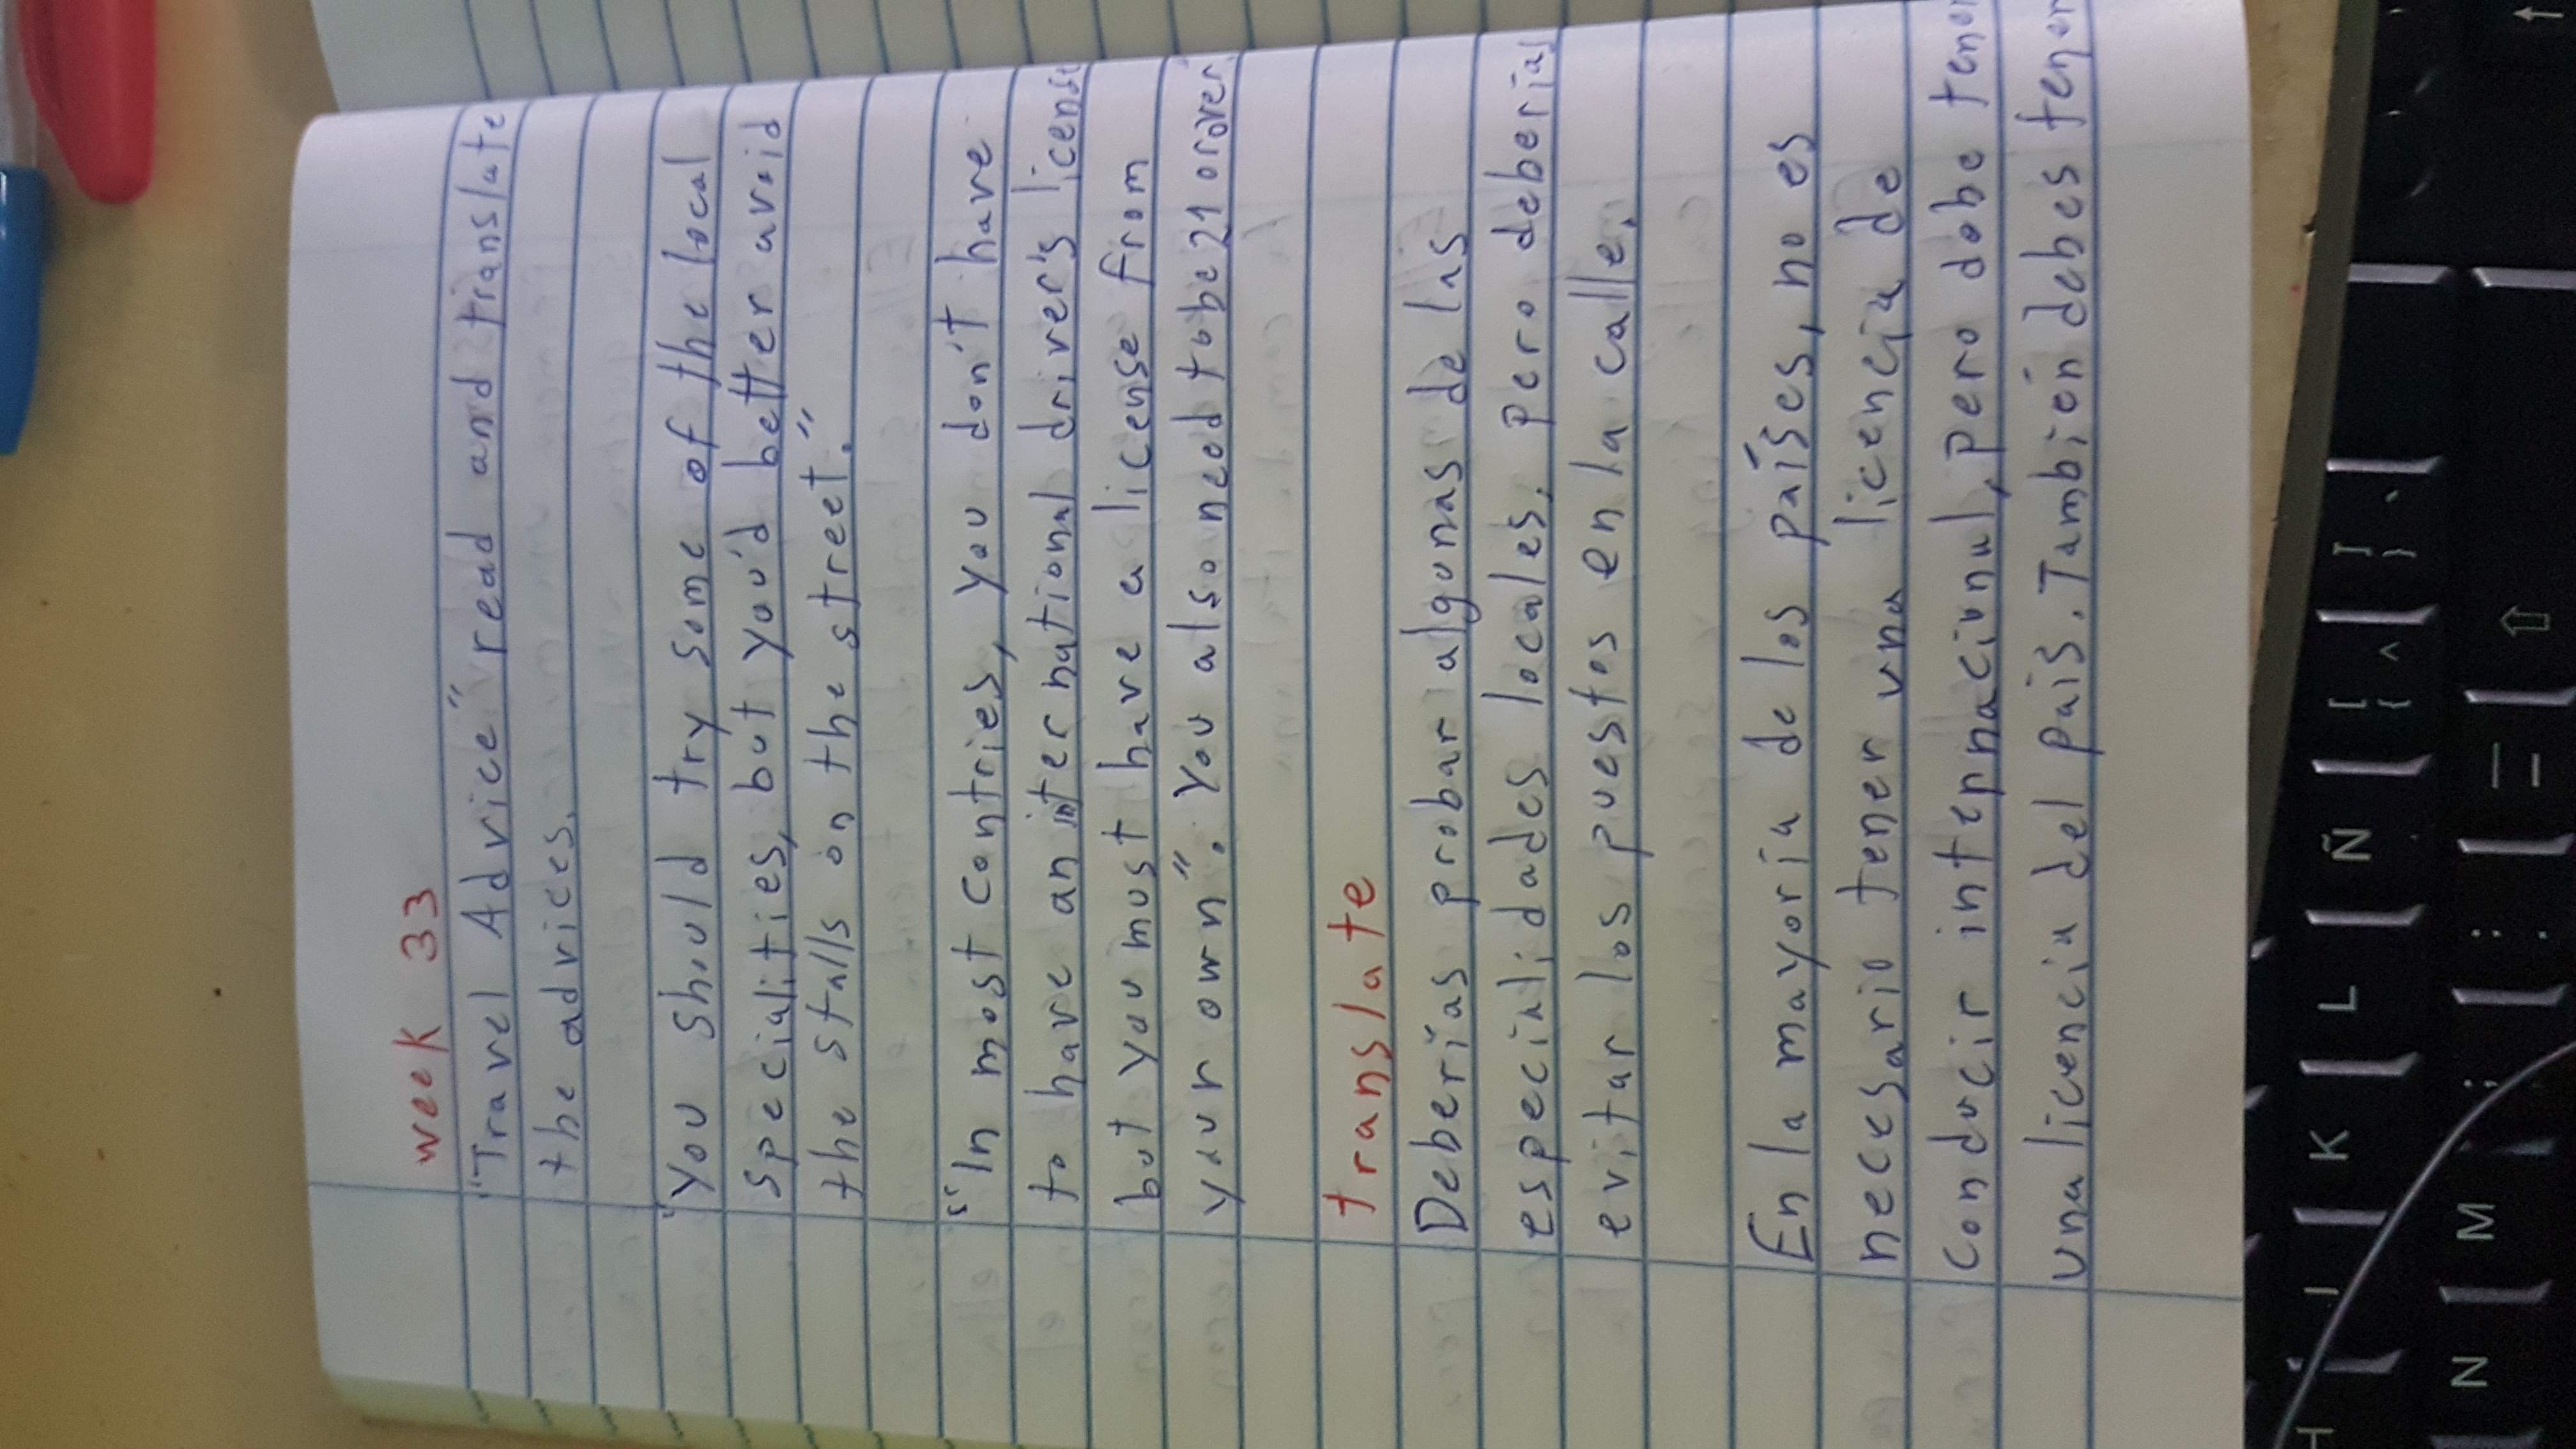 week 33
"Travel Advice" read and translate
the advices.
"You should try some of the local
specialities, but you'd better avoid
the stalls on the street."
"In most contries, you don't have
to have an international driver's license
but you must have a license from
your own". You also need to be 21 or over
translate
Deberías probar algunas de las
especialidades locales, pero deberías
evitar los puestos en la calle.
En la mayoría de los países, no es
necesario tener una licencia de
conducir internacional, pero debe tener
una licencia del país. También debes tener
H J K L Ñ
N M